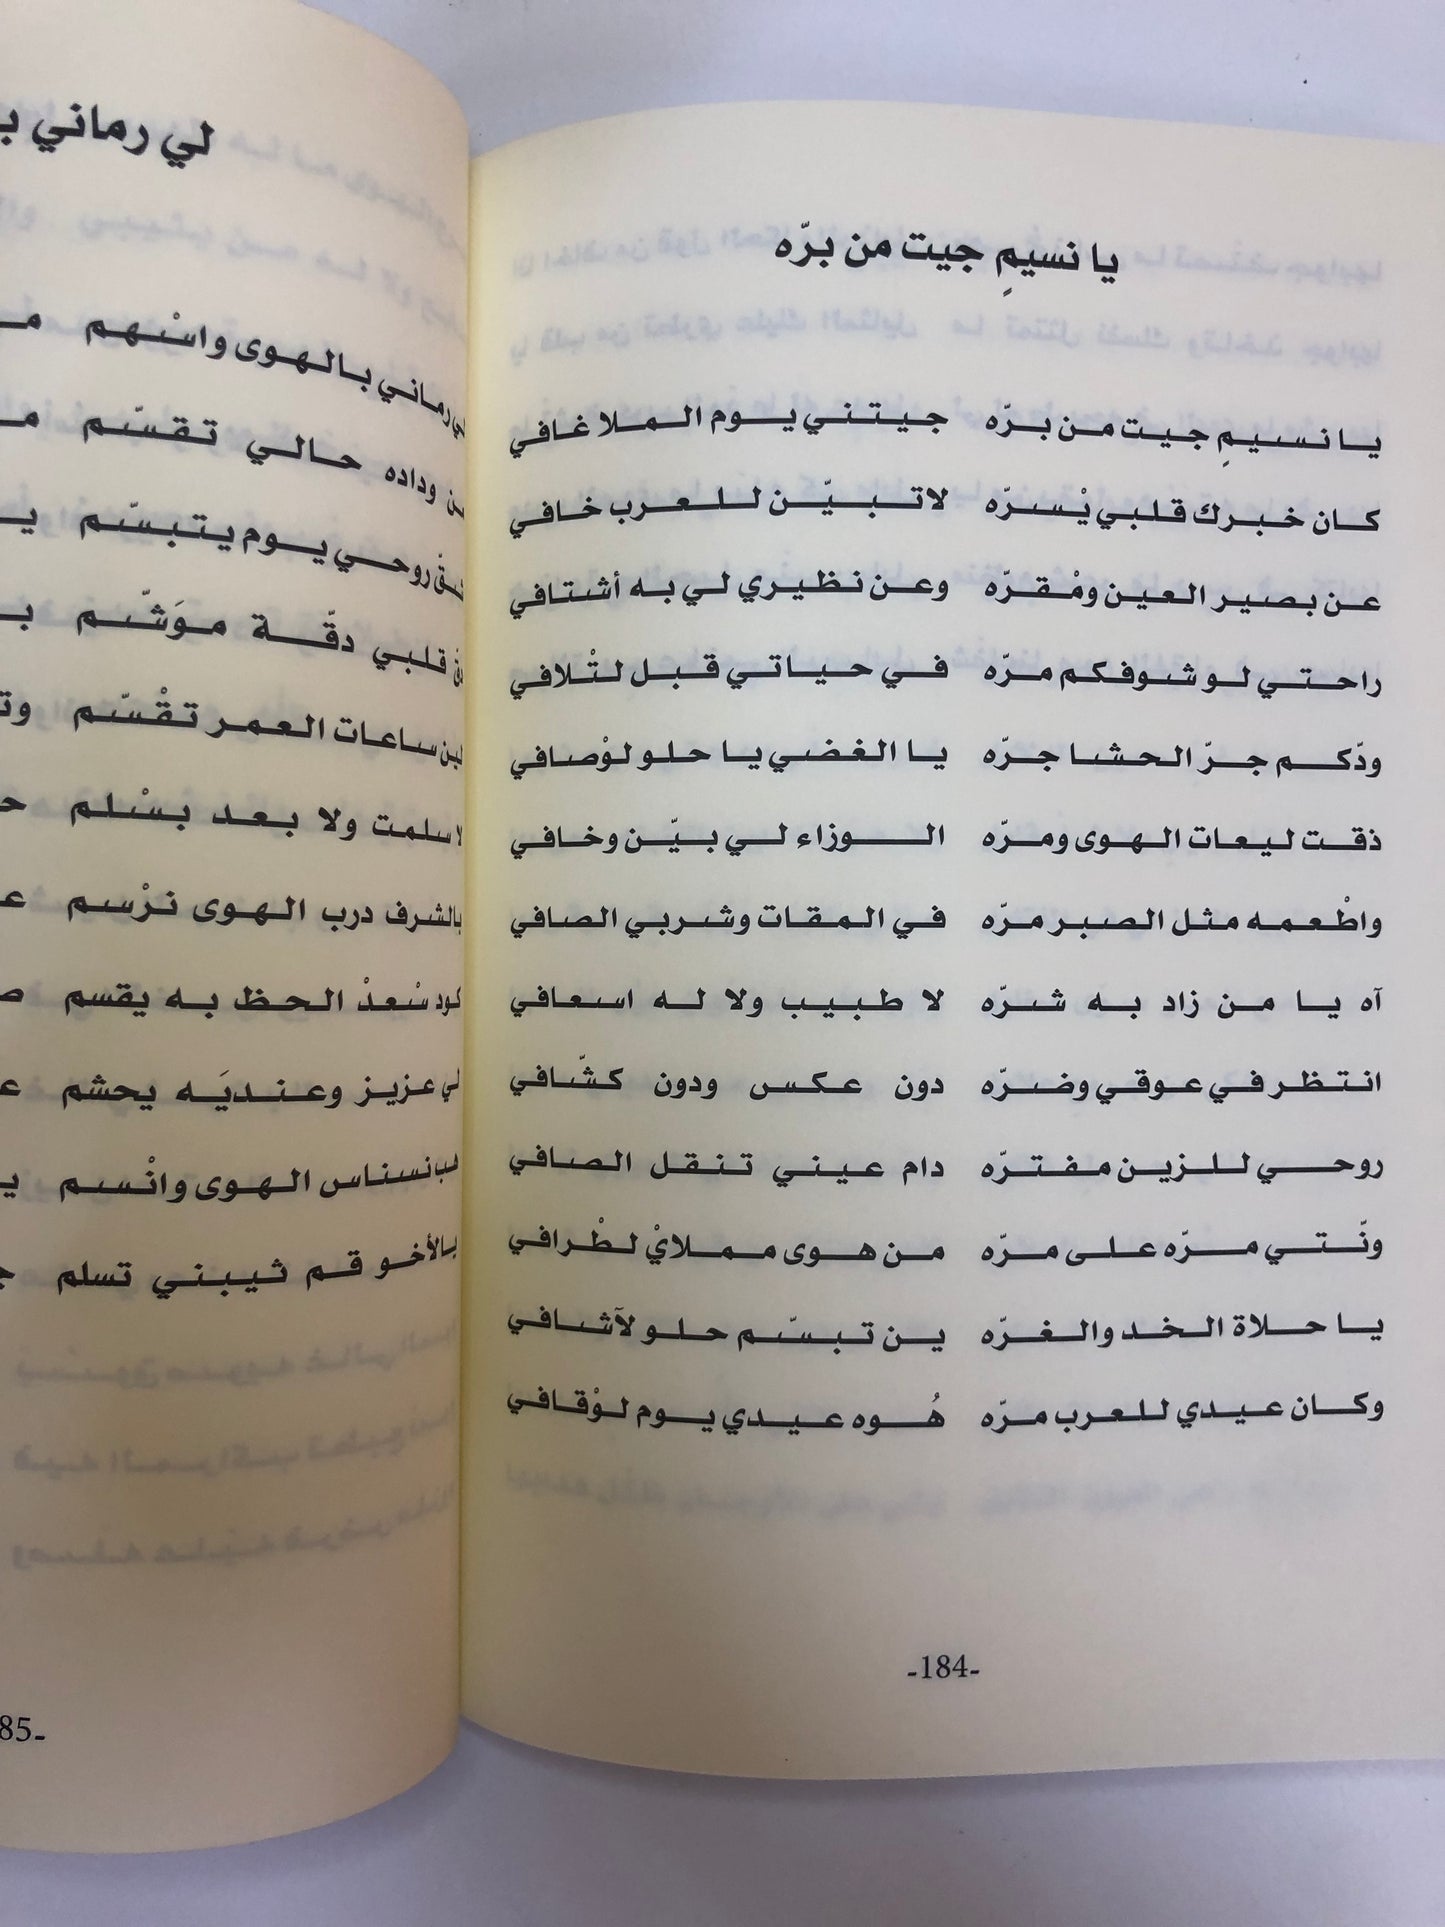 يا نسيمٍ جيت من برّه
يا نسيمٍ جيت من برّه جيتني يوم الملا غافي
كان خبرك قلبي يْسرّه لاتبيّن للعرب خافي
عن بصير العين ومْقرّه وعن نظيري لي به أشتافي
راحتي لو شوفكم مرّه في حياتي قبل لتْلافي
ودّكم جرّ الحشا جرّه يا الغضي يا حلو لوْصافي
ذقت ليعات الهوى ومرّه الوزاء لي بيّن وخافي
واطْعمه مثل الصبر مرّه في المقات وشربي الصافي
آه يا من زاد به شرّه لا طبيب ولا له اسعافي
انتظر في عوقي وضرّه دون عكس ودون كشّافي
روحي للزين مفترّه دام عيني تنقل الصافي
ونّتي مرّه على مرّه من هوى مملايْ لطْرافي
يا حلاة الخد والغرّه ين تبسّم حلو لآشافي
وكان عيدي للعرب مرّه هُوه عيدي يوم لوْقافي
-184-
لي رماني
لي رماني بالهوى واسْهم
من وداده حالي تقسّم
روحي يوم يتبسّم
قلبي دقّة موَشّم
لين ساعات العمر تقْسّم
لا سلمت ولا بعد بسْلم
بالشرف درب الهوى نرْسم
كود سْعدْ الحظ به يقسم
لي عزيز وعنديَه يحشم
هب نسناس الهوى وانْسم
يالأخو قم ثيبني تسلم
85-